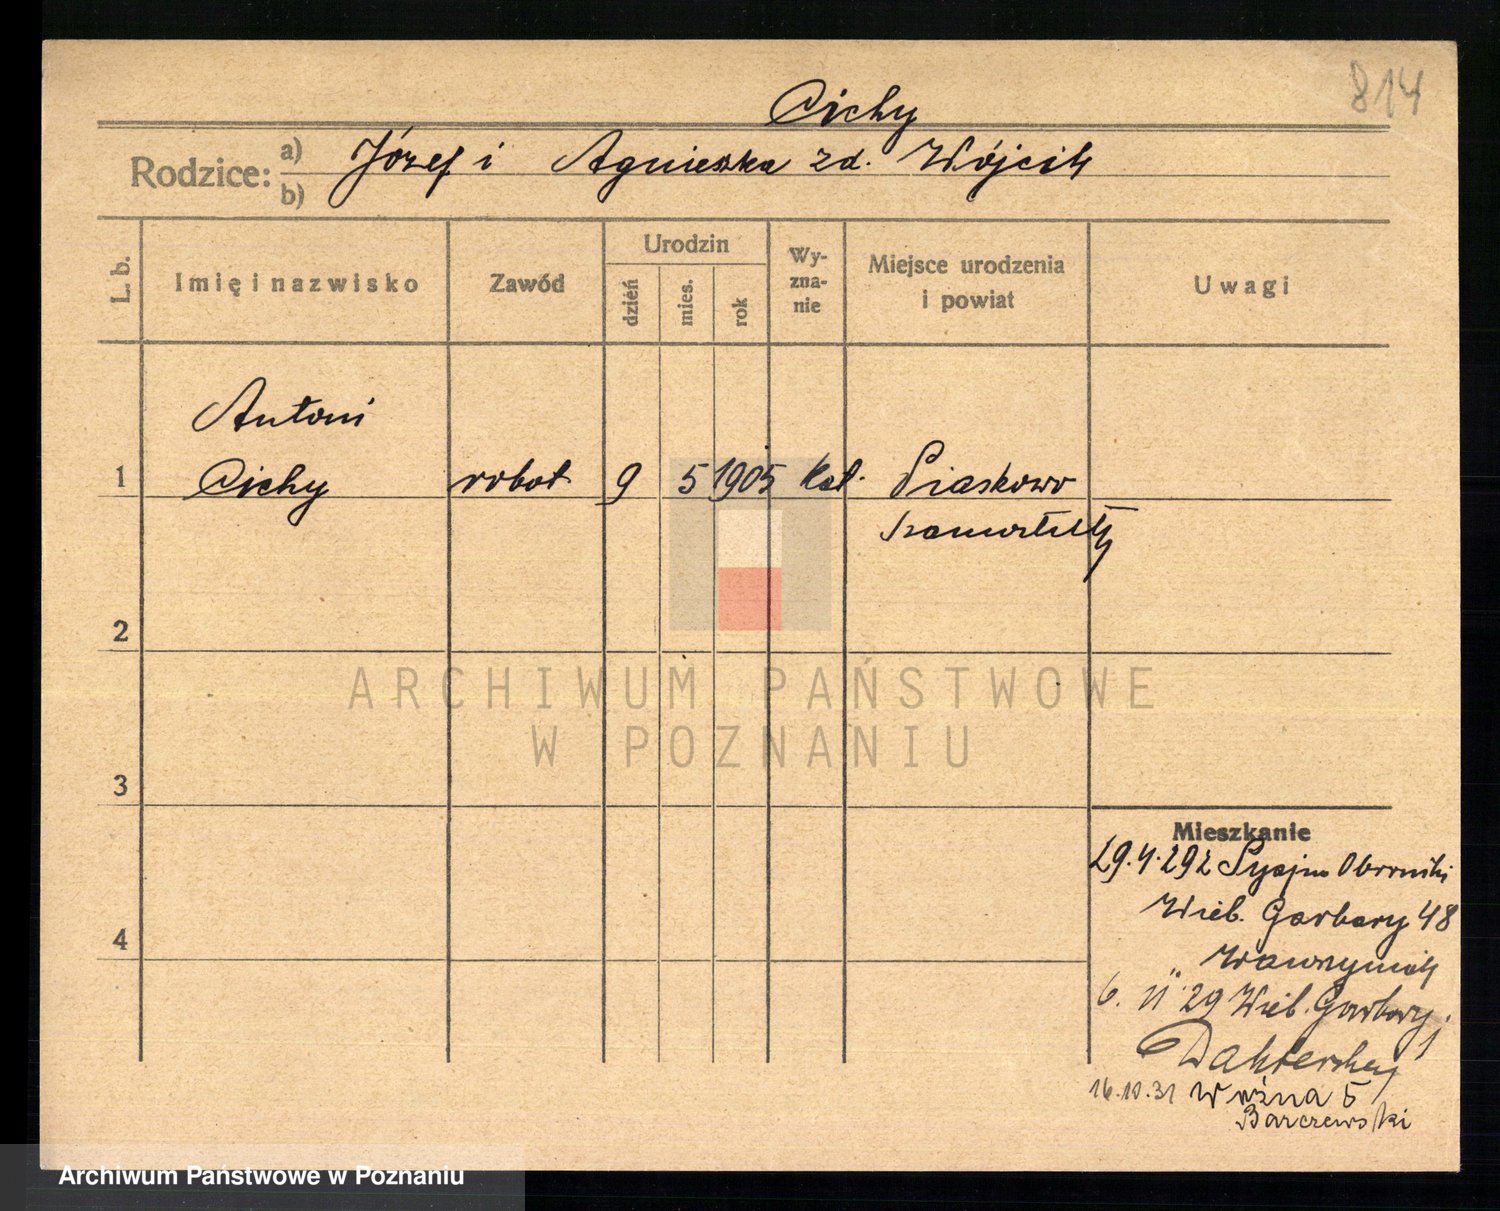 814
Cichy
Rodzice: a) b) Józef i Agnieszka zd. Wójcik
L. b. Imię i nazwisko Zawód Urodzin dzień mies. rok Wy-zna-nie Miejsce urodzenia i powiat Uwagi
Antoni
1 Cichy robot 9 5 1905 kat. Piaskowo
2
3
4
Mieszkanie
29.4.29 z Oborniki
Wielk. Garbary 48
6. 11. 29 Wielk. Garbary 1
16.10.31 Woźna 5
Barczewski
ARCHIWUM PAŃSTWOWE
W POZNANIU
Archiwum Państwowe w Poznaniu